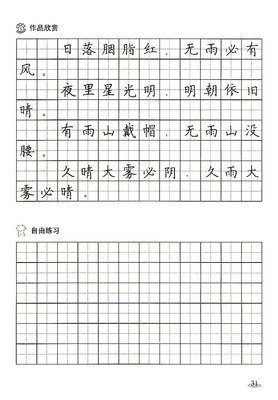 作品欣赏
日落胭脂红，无雨必有
风。
夜里星光明，明朝依旧
晴。
有雨山戴帽，无雨山没
腰。
久晴大雾必阴，久雨大
雾必晴。
自由练习
31